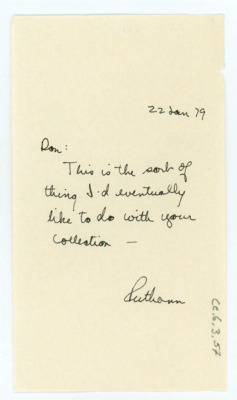 22 Jan 79
Don:
This is the sort of
thing I'd eventually
like to do with your
collection —
Ruthann
CC.6.3.57